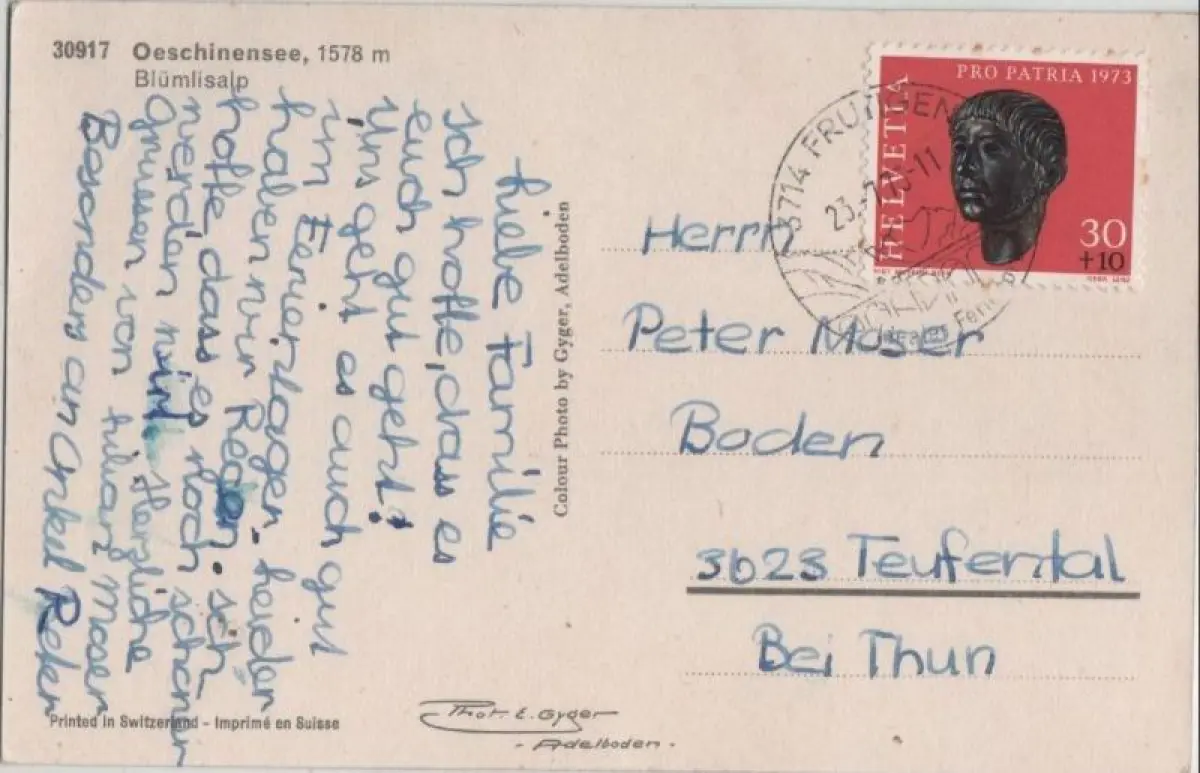 30917 Oeschinensee, 1578 m
Blümlisalp
Liebe Familie
Ich hoffe, dass es
euch gut geht!
Uns geht es auch gut
im Ferienlager. Leider
haben wir Regen. Ich
hoffe dass es noch schöner
werden wird. Herzliche
Grüssen von Lilian Moser
Besonders an Onkel
Colour Photo by Gyger, Adelboden
PRO PATRIA 1973
HELVETIA
30
+10
3714 FRUTIGEN
23.-7.73-11
Herrn
Peter Moser
Boden
3623 Teufental
Bei Thun
Printed in Switzerland - Imprimé en Suisse
Phot. E. Gyger
- Adelboden -